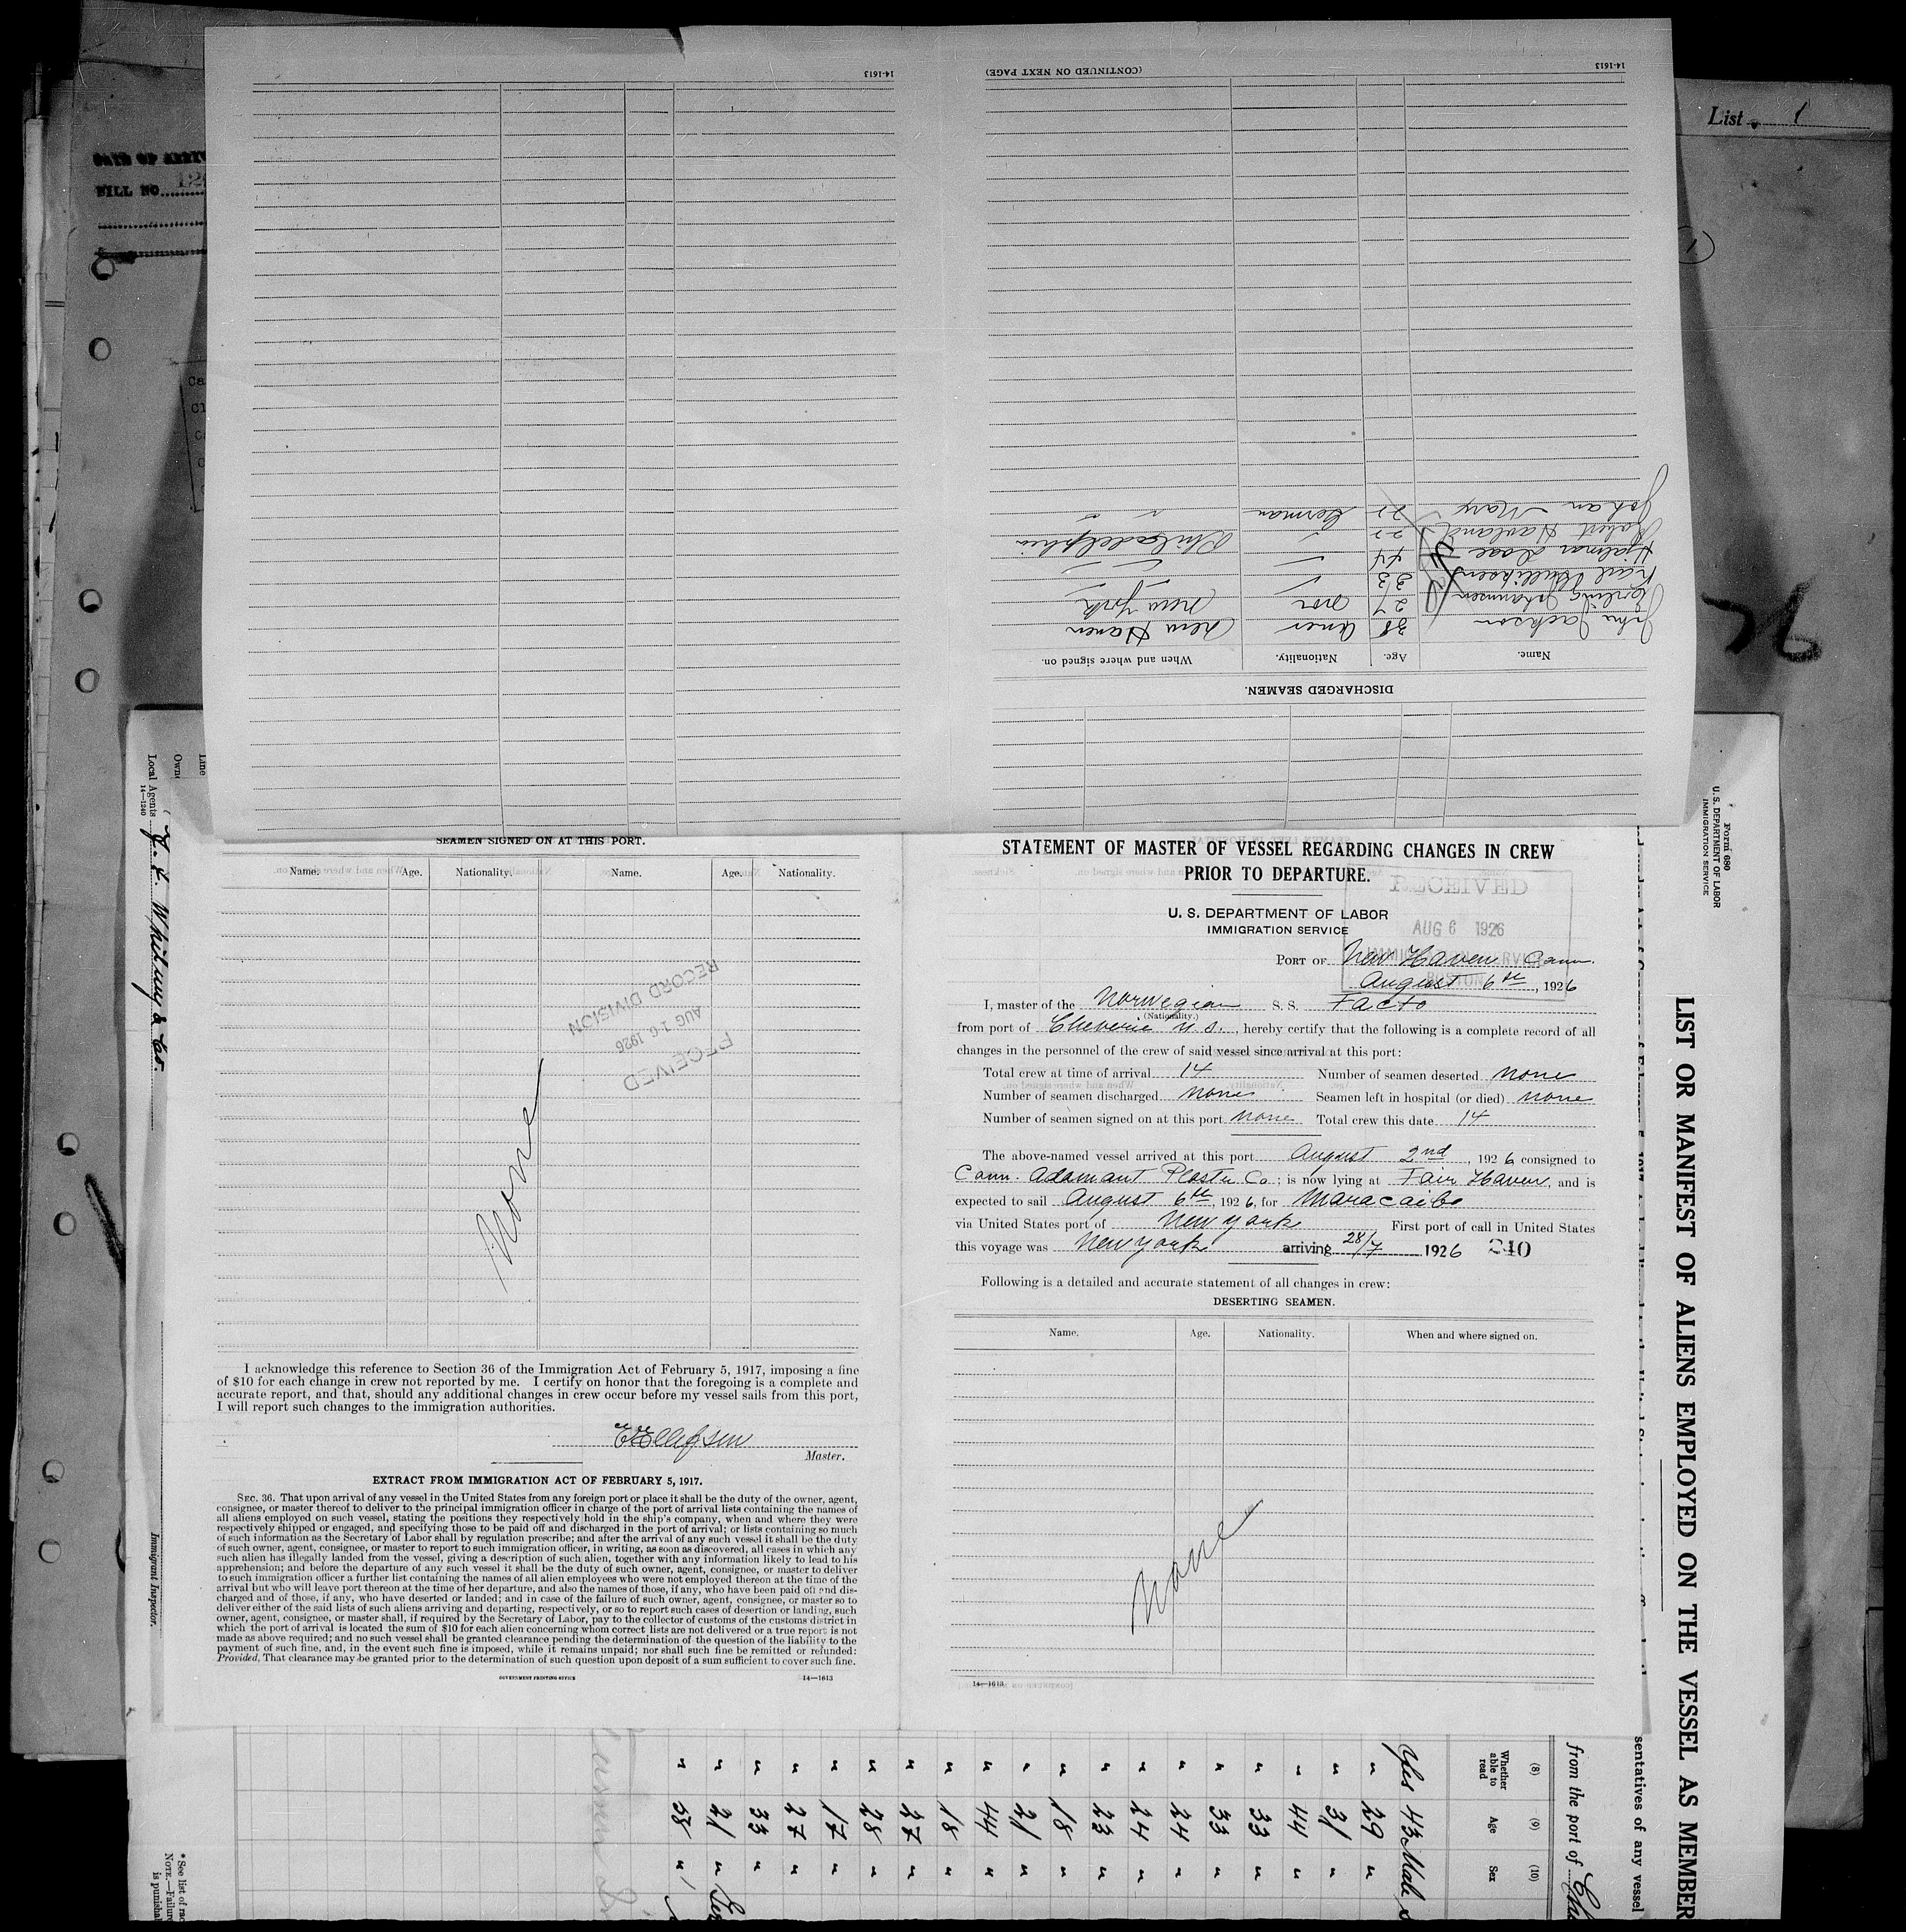 14-1613
(CONTINUED ON NEXT PAGE)
14-1613
List 1
DATE OF ARRIV
BILL NO. 12
Johan Marx 22 German " "
Robert Havland 22 " Philadelphia
Hjalmar 44 " " "
Karl 33 " " "
Johannsen 27 Nor New York
John Jackson 38 Amer New Haven
Name. Age. Nationality. When and where signed on.
DISCHARGED SEAMEN.
26
Line
Own
Local Agents
14—1240
Immigrant Inspector.
* See list of rac
NOTE.—Failure
is punishal
SEAMEN SIGNED ON AT THIS PORT.
Name. Age. Nationality. Name. Age. Nationality.
RECEIVED
AUG 16 1926
RECORD DIVISION
None
I acknowledge this reference to Section 36 of the Immigration Act of February 5, 1917, imposing a fine
of $10 for each change in crew not reported by me. I certify on honor that the foregoing is a complete and
accurate report, and that, should any additional changes in crew occur before my vessel sails from this port,
I will report such changes to the immigration authorities.
E Ellefsen
Master.
EXTRACT FROM IMMIGRATION ACT OF FEBRUARY 5, 1917.
SEC. 36. That upon arrival of any vessel in the United States from any foreign port or place it shall be the duty of the owner, agent,
consignee, or master thereof to deliver to the principal immigration officer in charge of the port of arrival lists containing the names of
all aliens employed on such vessel, stating the positions they respectively hold in the ship's company, when and where they were
respectively shipped or engaged, and specifying those to be paid off and discharged in the port of arrival; or lists containing so much
of such information as the Secretary of Labor shall by regulation prescribe; and after the arrival of any such vessel it shall be the duty
of such owner, agent, consignee, or master to report to such immigration officer, in writing, as soon as discovered, all cases in which any
such alien has illegally landed from the vessel, giving a description of such alien, together with any information likely to lead to his
apprehension; and before the departure of any such vessel it shall be the duty of such owner, agent, consignee, or master to deliver
to such immigration officer a further list containing the names of all alien employees who were not employed thereon at the time of the
arrival but who will leave port thereon at the time of her departure, and also the names of those, if any, who have been paid off and dis-
charged and of those, if any, who have deserted or landed; and in case of the failure of such owner, agent, consignee, or master so to
deliver either of the said lists of such aliens arriving and departing, respectively, or so to report such cases of desertion or landing, such
owner, agent, consignee, or master shall, if required by the Secretary of Labor, pay to the collector of customs of the customs district in
which the port of arrival is located the sum of $10 for each alien concerning whom correct lists are not delivered or a true report is not
made as above required; and no such vessel shall be granted clearance pending the determination of the question of the liability to the
payment of such fine, and, in the event such fine is imposed, while it remains unpaid; nor shall such fine be remitted or refunded:
Provided, That clearance may be granted prior to the determination of such question upon deposit of a sum sufficient to cover such fine.
GOVERNMENT PRINTING OFFICE
14—1613
STATEMENT OF MASTER OF VESSEL REGARDING CHANGES IN CREW
PRIOR TO DEPARTURE.
U. S. DEPARTMENT OF LABOR
IMMIGRATION SERVICE
RECEIVED
AUG 6 1926
IMMIGRATION SERVICE
BOSTON
PORT OF New Haven Conn.
August 6th, 1926
I, master of the Norwegian S. S. Facto
(Nationality.)
from port of Cheverie N.S., hereby certify that the following is a complete record of all
changes in the personnel of the crew of said vessel since arrival at this port:
Total crew at time of arrival 14 Number of seamen deserted none
Number of seamen discharged none Seamen left in hospital (or died) none
Number of seamen signed on at this port none Total crew this date 14
The above-named vessel arrived at this port August 2nd, 1926 consigned to
Conn. Adamant Plaster Co; is now lying at Fair Haven, and is
expected to sail August 6th, 1926, for Maracaibo
via United States port of New York First port of call in United States
this voyage was New York arriving 28/7 1926 240
Following is a detailed and accurate statement of all changes in crew:
DESERTING SEAMEN.
Name. Age. Nationality. When and where signed on.
None
14—1613
Form 680
U. S. DEPARTMENT OF LABOR
IMMIGRATION SERVICE
LIST OR MANIFEST OF ALIENS EMPLOYED ON THE VESSEL AS MEMBER
sentatives of any vessel
from the port of
(8) (9) (10)
Whether able to read Age Sex
Yes 43 Male
" 29 "
" 31 "
" 44 "
" 33 "
" 33 "
" 24 "
" 24 "
" 23 "
" 18 "
" 21 "
" 44 "
" 18 "
" 27 "
" 28 "
" 17 "
" 27 "
" 33 "
" 21 "
" 38 "